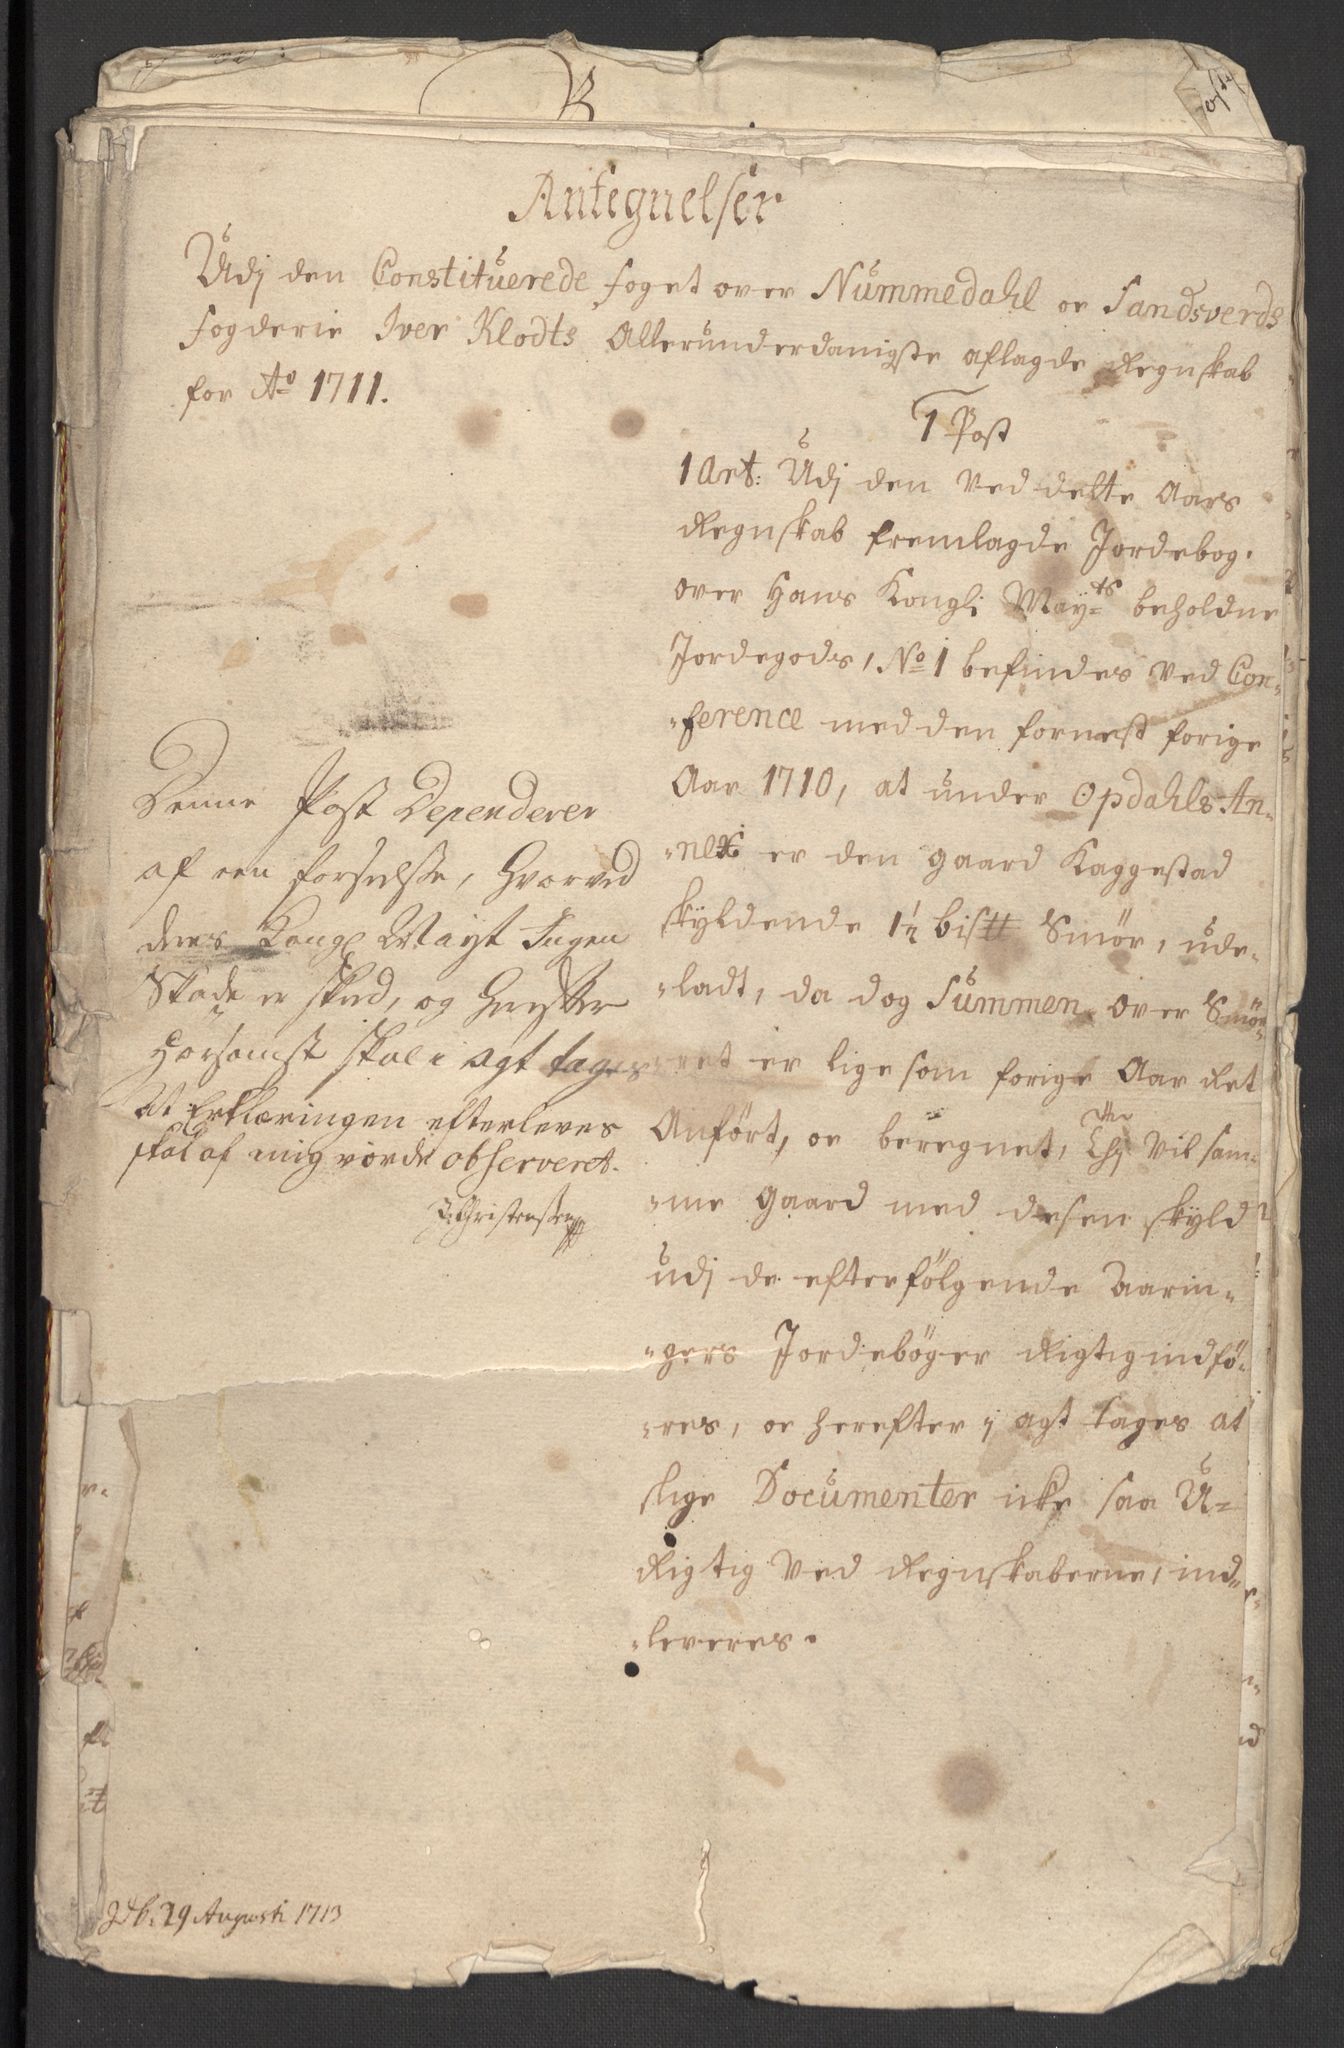 Antegnelser
Udj den Constituerede foget over Nummedahl oc Sandsverds
fogderie Iver Klodts Allerunderdanigste aflagde Regnskab
for Ao 1711.
1 Post
1 Art: Udj den Ved dette Aars
Regnskab fremlagde Jordebog.
over Hans Kongli Maytts beholdne
Jordegods, No 1 befindes ved Con-
-ference med den fornest forige
Aar 1710, at under Opdahls An-
-nex er den gaard Kaggestad
skyldende 1½ bis℔ Smör, ude-
-ladt, da dog Summen over Smö-
-ret er lige som forige Aar Ret
Anfört, oc beregnet, Thj vil sam-
-me gaard med desen skyld
udj de efterfölgende Aarin-
-gers Jordebøger Rigtig indfö-
-res, oc herefter j agt tages at
slige Documenter icke saa U-
Rigtig Ved Regnskaberne, ind-
-leveres.
Denne Post Dependerer
af een forseelsse, hvorved
deres Kongl Mayt Ingen
Skade er skeed, og herefter
hörsomst skal i agt tages
At Erklæringen efterleves
skal af mig vorde observeret.
Christenssen
29 Augusti 1713